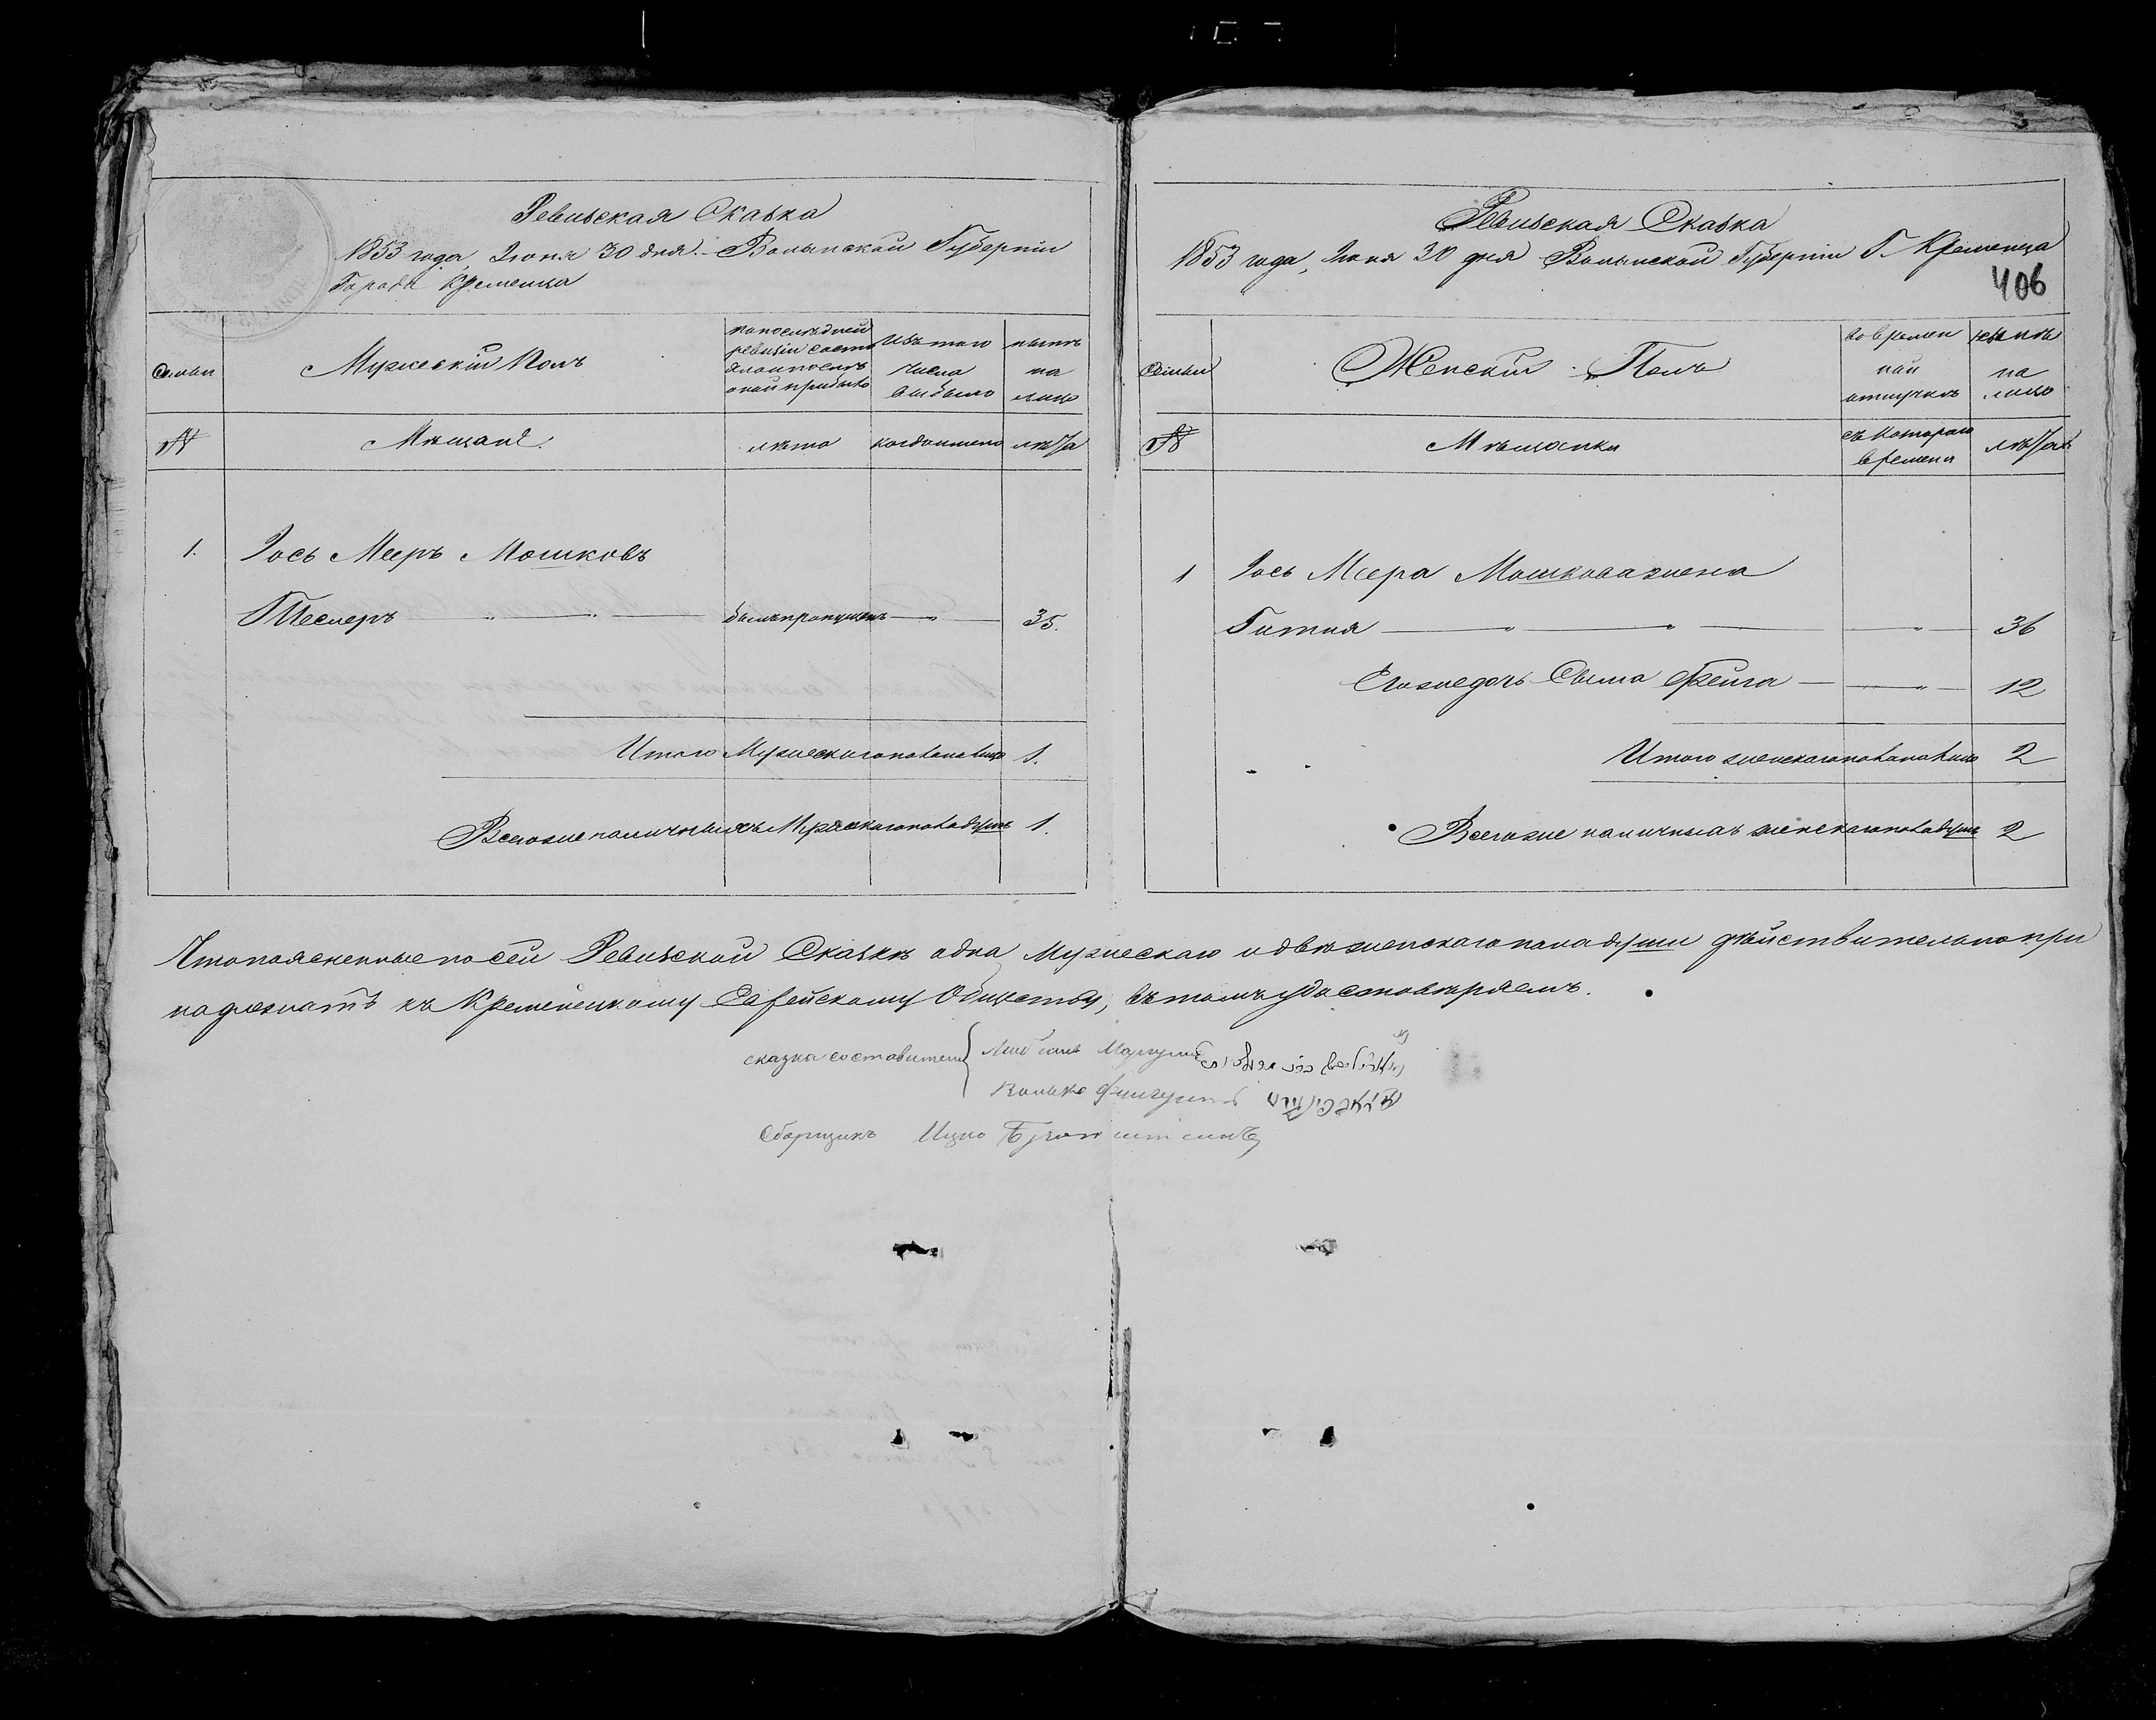 Ревизская Сказка
1853 года, Июня 30 дня. Волынской Губернiи
Города Кременца
Семьи
Мужескiй Полъ
по последней
ревизiи состо
яло и послѣ
оной прибыло
Изъ того
числа
выбыло
нынѣ
на
лицо
№
Мѣщане.
лѣта
когда именно
лѣта
1. Іось Мееръ Мошковъ
Теслеръ был пропущенъ 35.
Итого Мужескаго пола на лицо 1.
Всего же наличныхъ Мужескаго пола душъ 1.
Ревизская Сказка
1853 года, Июня 30 дня Волынской Губернiи Г. Кременца
406
Семьи
Женскiй Полъ
Во времен
ной
отлучкѣ
нынѣ
на
лицо
№
Мѣщанки
съ котораго
времени
лѣта
1 Іось Меера Мошкова жена
Гитля 36
Его же дочь Сыма Фейга 12
Итого женскаго пола на лицо 2
Всего же наличныхъ женскаго пола душъ 2
Что поясненные по сей Ревизской Сказкѣ одна Мужескаго и двѣ женскаго пола души дѣйствительно при
надлежатъ къ Кременецкому Еврейскому Обществу, въ томъ удостовѣряемъ.
сказка составители
Сборщикъ Ицко Бронштейнъ